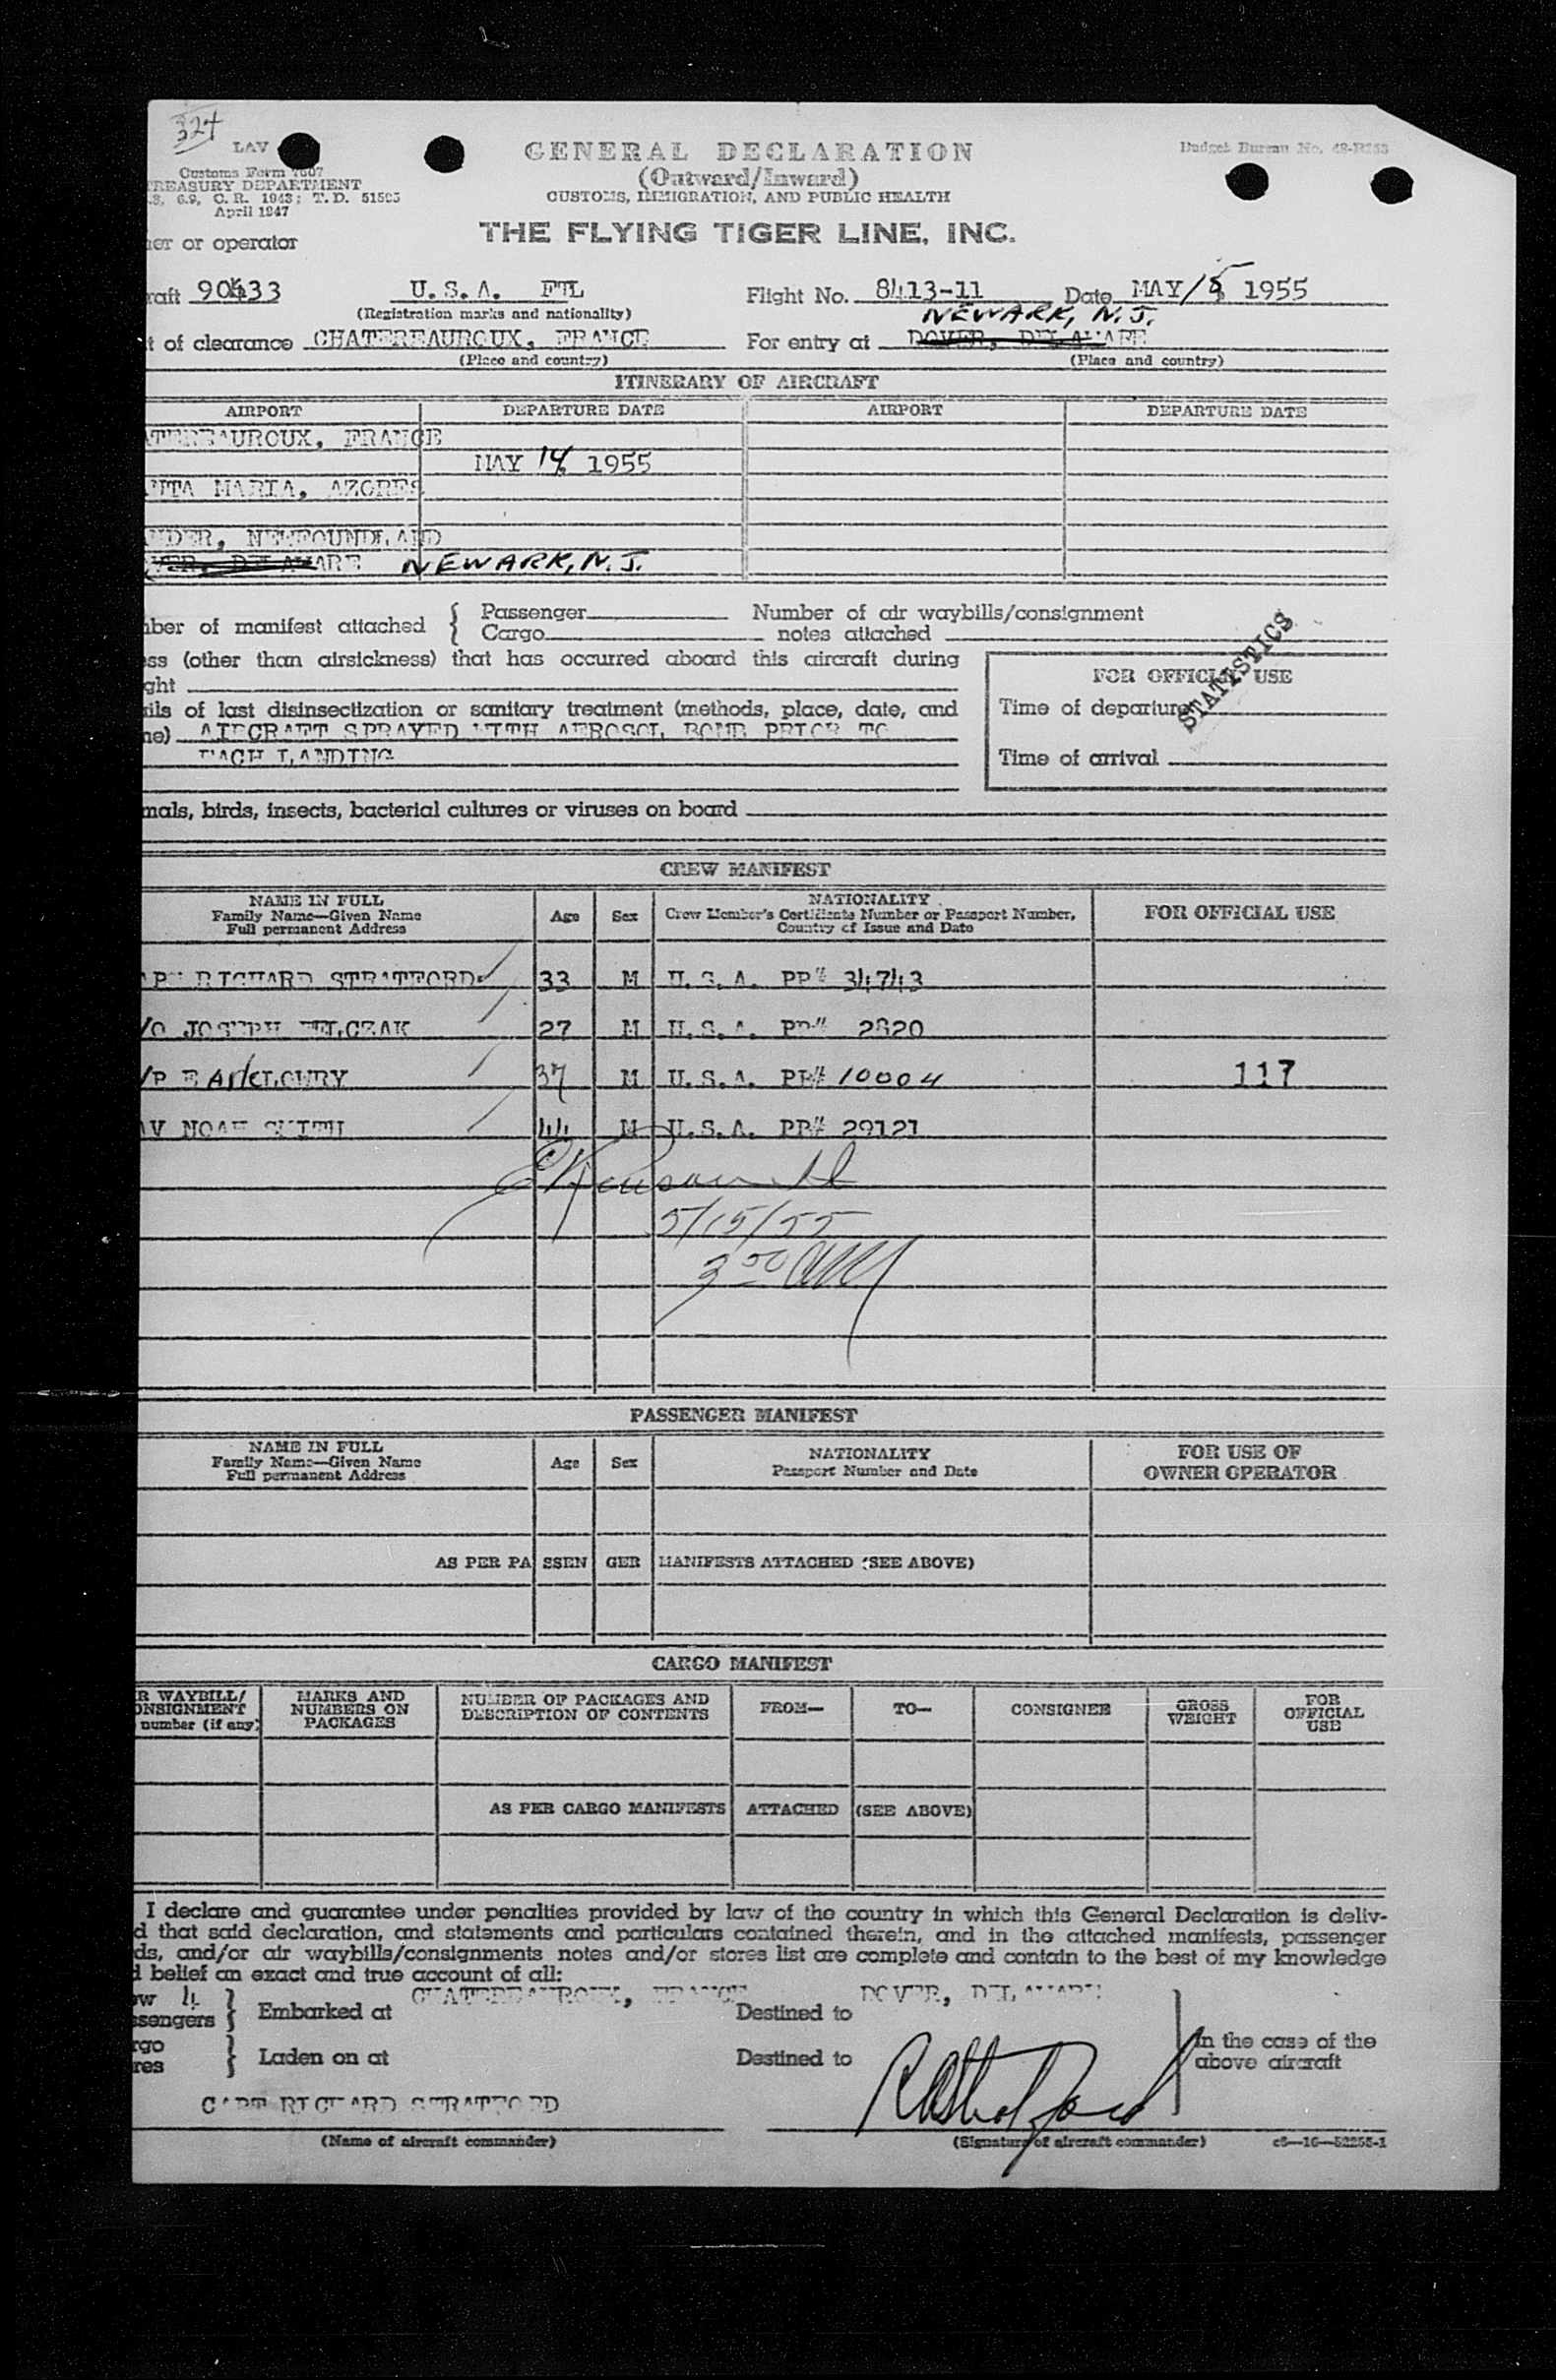 324
LAV
Customs Form 7507
TREASURY DEPARTMENT
April 1947
GENERAL DECLARATION
(Outward/Inward)
CUSTOMS, IMMIGRATION, AND PUBLIC HEALTH
Budget Bureau No.
er or operator
THE FLYING TIGER LINE, INC.
raft 90433 U.S.A. FTL Flight No. 8413-11 Date MAY 15 1955
(Registration marks and nationality)
NEWARK, N.J.
t of clearance CHATEREAUROUX, FRANCE For entry at DOVER, DELAWARE
(Place and country) (Place and country)
ITINERARY OF AIRCRAFT
AIRPORT DEPARTURE DATE AIRPORT DEPARTURE DATE
ATEREAUROUX, FRANCE
MAY 14 1955
NTA MARIA, AZORES
NDER, NEWFOUNDLAND
VER, DELAWARE NEWARK, N.J.
ber of manifest attached { Passenger Number of air waybills/consignment
{ Cargo notes attached
ess (other than airsickness) that has occurred aboard this aircraft during
ght
FOR OFFICIAL USE
STATISTICS
ils of last disinsectization or sanitary treatment (methods, place, date, and
Time of departure
ne) AIRCRAFT SPRAYED WITH AEROSOL BOMB PRIOR TO
EACH LANDING
Time of arrival
mals, birds, insects, bacterial cultures or viruses on board
CREW MANIFEST
NAME IN FULL
Family Name—Given Name
Full permanent Address
Age Sex
NATIONALITY
Crew Member's Certificate Number or Passport Number,
Country of Issue and Date
FOR OFFICIAL USE
RICHARD STRATFORD 33 M U.S.A. PP# 34743
/O JOSEPH FELCZAK 27 M U.S.A. PP# 2820
/P 37 M U.S.A. PP# 10004 117
V NOAH SMITH 44 M U.S.A. PP# 29121
5/15/55
3 00 AM
PASSENGER MANIFEST
NAME IN FULL
Family Name—Given Name
Full permanent Address
Age Sex
NATIONALITY
Passport Number and Date
FOR USE OF
OWNER OPERATOR
AS PER PASSENGER MANIFESTS ATTACHED (SEE ABOVE)
CARGO MANIFEST
R WAYBILL/
ONSIGNMENT
number (if any)
MARKS AND
NUMBERS ON
PACKAGES
NUMBER OF PACKAGES AND
DESCRIPTION OF CONTENTS
FROM— TO— CONSIGNEE
GROSS
WEIGHT
FOR
OFFICIAL
USE
AS PER CARGO MANIFESTS ATTACHED (SEE ABOVE)
I declare and guarantee under penalties provided by law of the country in which this General Declaration is deliv-
d that said declaration, and statements and particulars contained therein, and in the attached manifests, passenger
ds, and/or air waybills/consignments notes and/or stores list are complete and contain to the best of my knowledge
d belief an exact and true account of all:
ew 4 } Embarked at CHATEREAUROUX, FRANCE Destined to DOVER, DELAWARE
ssengers
rgo } Laden on at Destined to
res
In the case of the
above aircraft
CAPT RICHARD STRATFORD
(Name of aircraft commander) (Signature of aircraft commander)